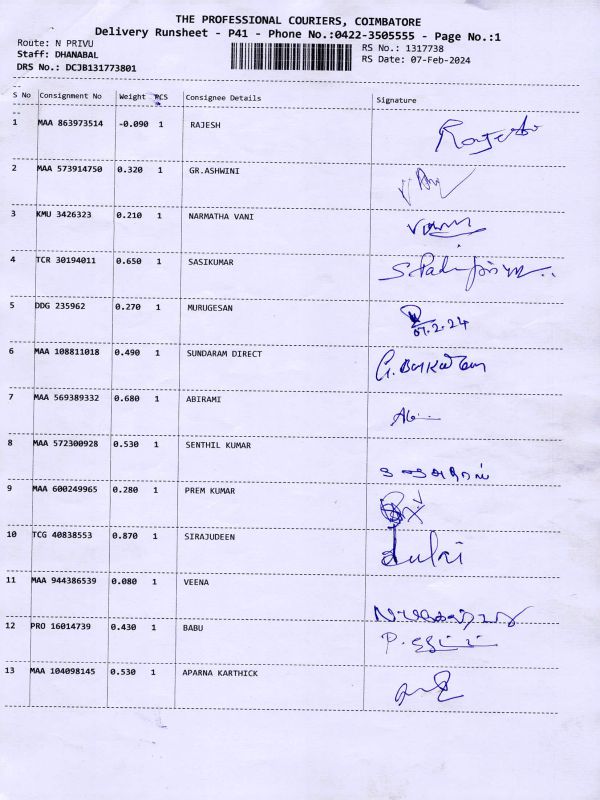 THE PROFESSIONAL COURIERS, COIMBATORE
Delivery Runsheet - P41 - Phone No.:0422-3505555 - Page No.:1
Route: N PRIVU RS No.: 1317738
Staff: DHANABAL RS Date: 07-Feb-2024
DRS No.: DCJB131773801
S No Consignment No Weight PCS Consignee Details Signature
1 MAA 863973514 -0.090 1 RAJESH
2 MAA 573914750 0.320 1 GR.ASHWINI
3 KMU 3426323 0.210 1 NARMATHA VANI
4 TCR 30194011 0.650 1 SASIKUMAR
5 DDG 235962 0.270 1 MURUGESAN
07.2.24
6 MAA 108811018 0.490 1 SUNDARAM DIRECT
7 MAA 569389332 0.680 1 ABIRAMI
8 MAA 572300928 0.530 1 SENTHIL KUMAR
9 MAA 600249965 0.280 1 PREM KUMAR
10 TCG 40838553 0.870 1 SIRAJUDEEN
11 MAA 944386539 0.080 1 VEENA
12 PRO 16014739 0.430 1 BABU
13 MAA 104098145 0.530 1 APARNA KARTHICK